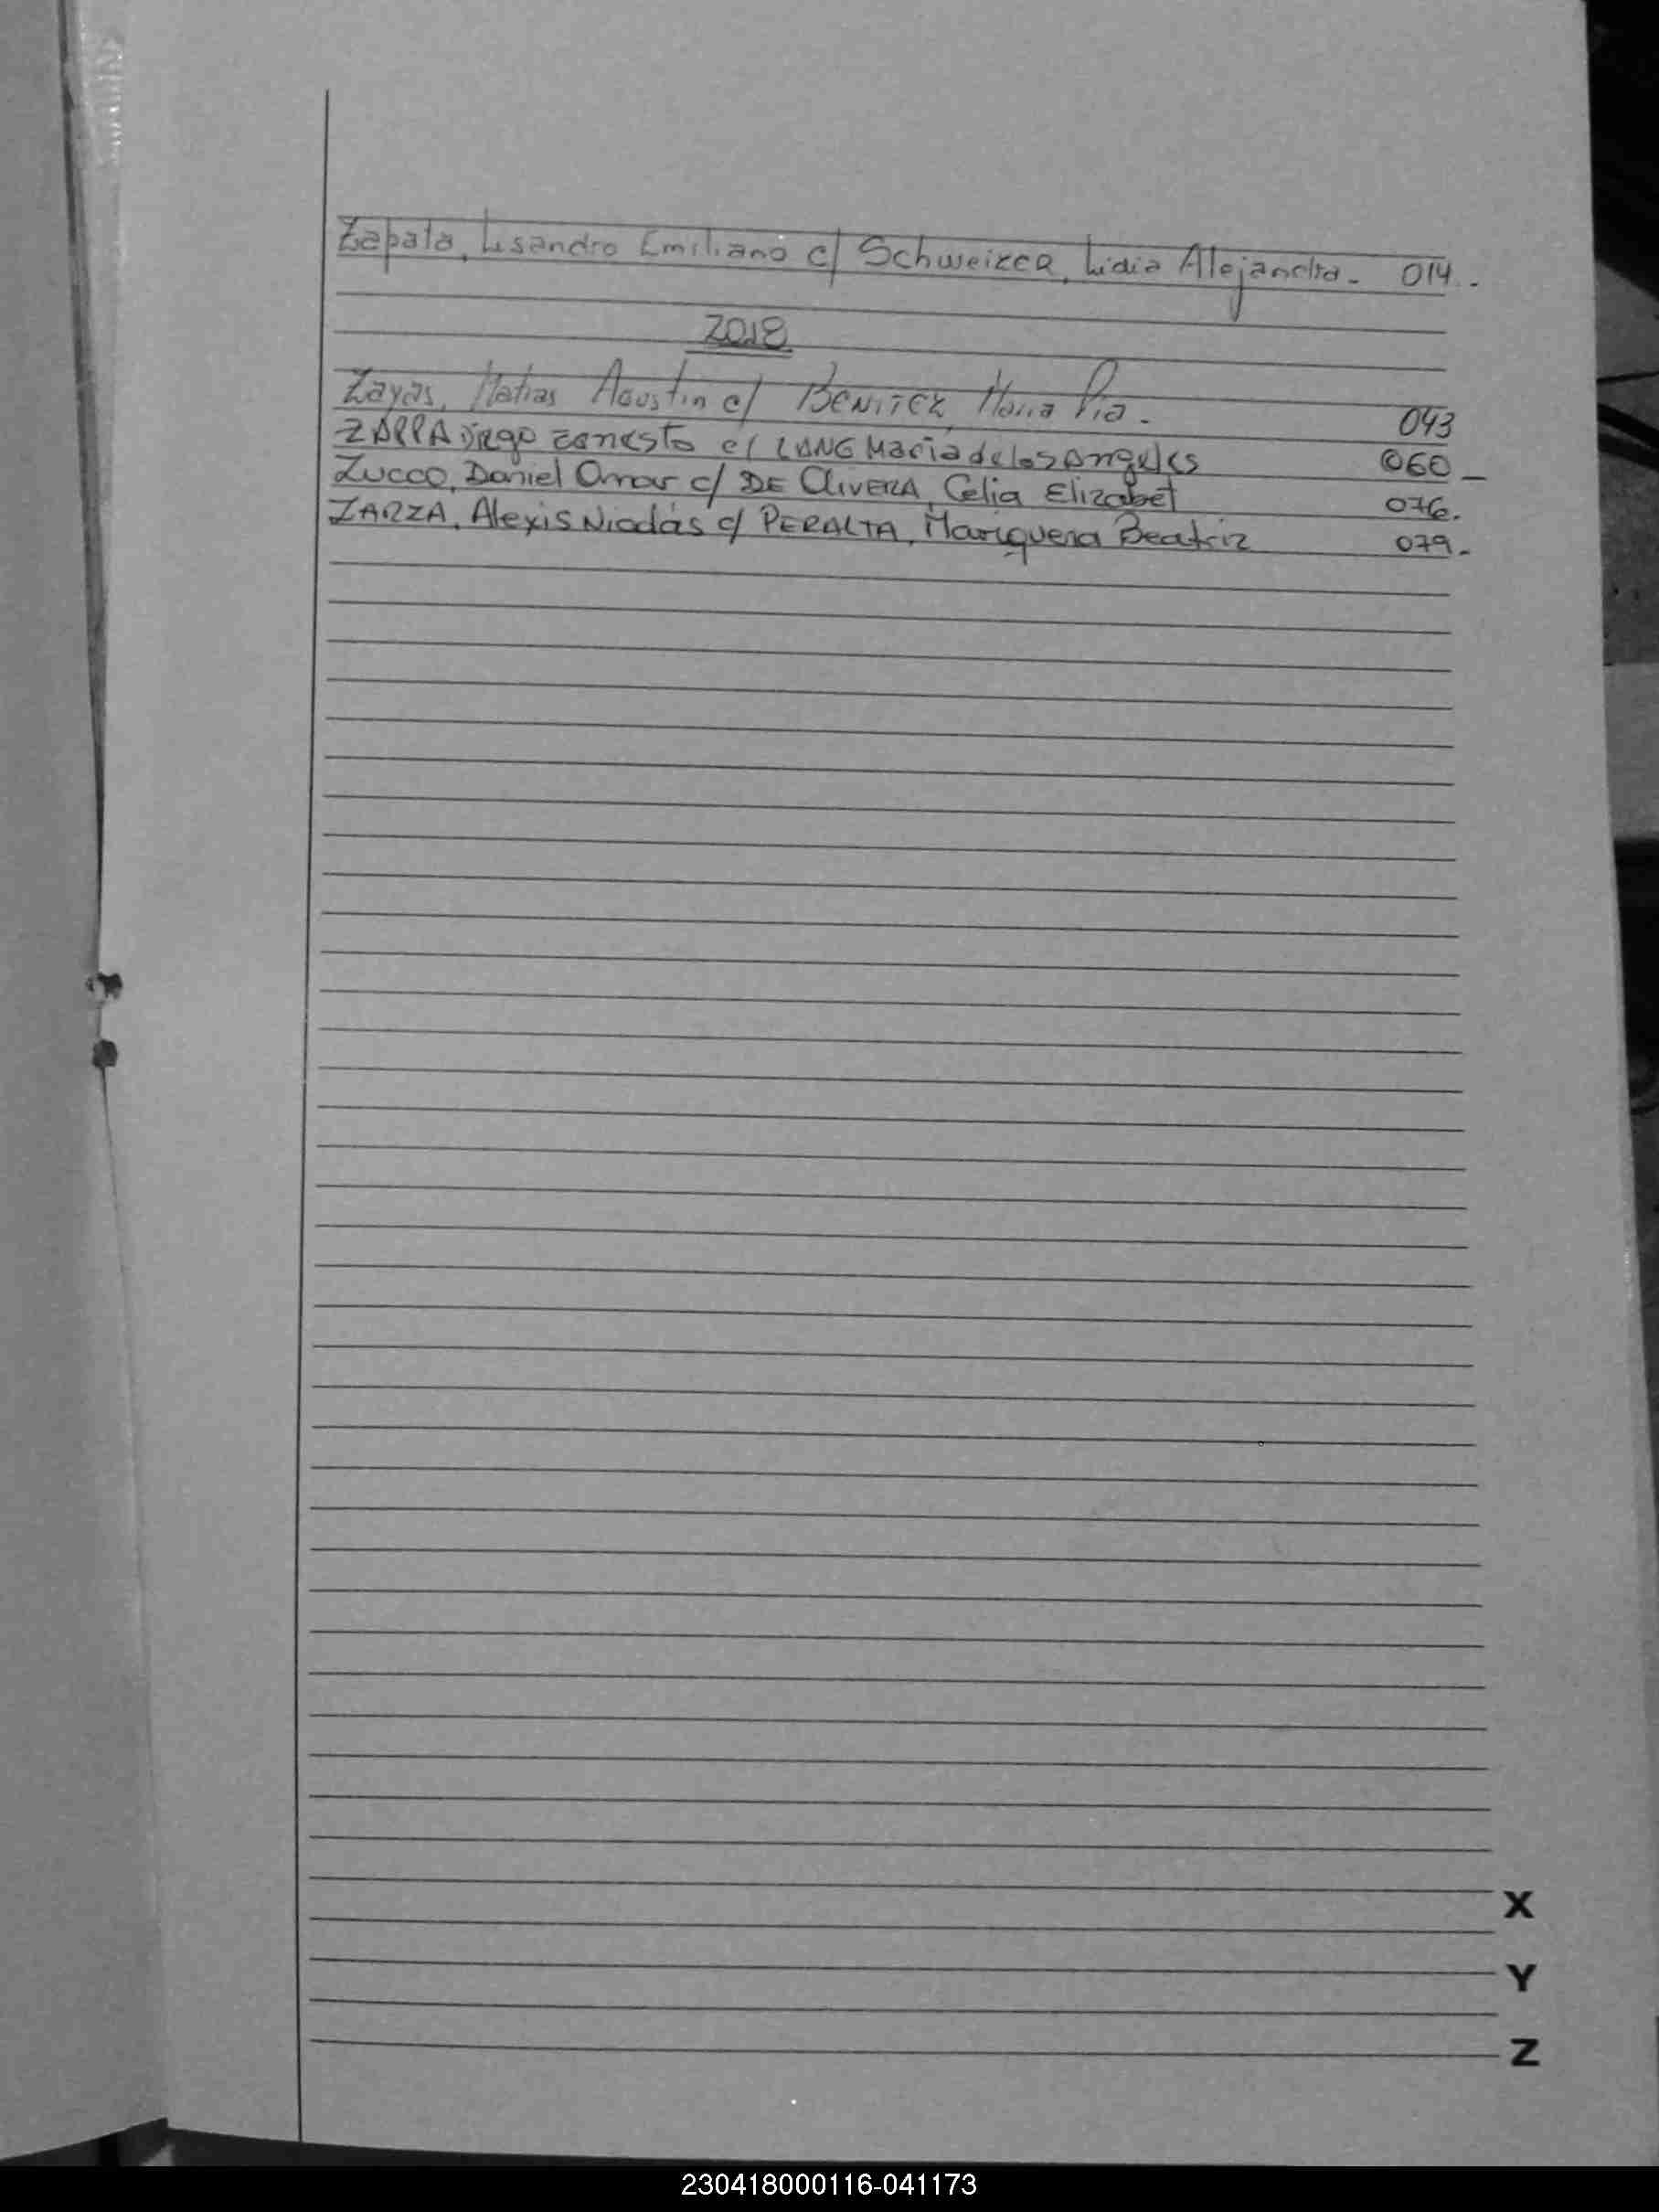 Zapata, Lisandro Emiliano c/ Schweizer, Lidia Alejandra. 014.
2018
Zayas, Matias Agustin c/ BENITEZ, Maria Pia. 043
ZAPPA Diego Ernesto c/ LANG Maria de los Angeles 060
Zucco, Daniel Omar c/ DE OLIVERA, Celia Elizabet 076.
ZARZA, Alexis Nicolás c/ PERALTA, Beatriz 079.
X
Y
Z
230418000116-041173